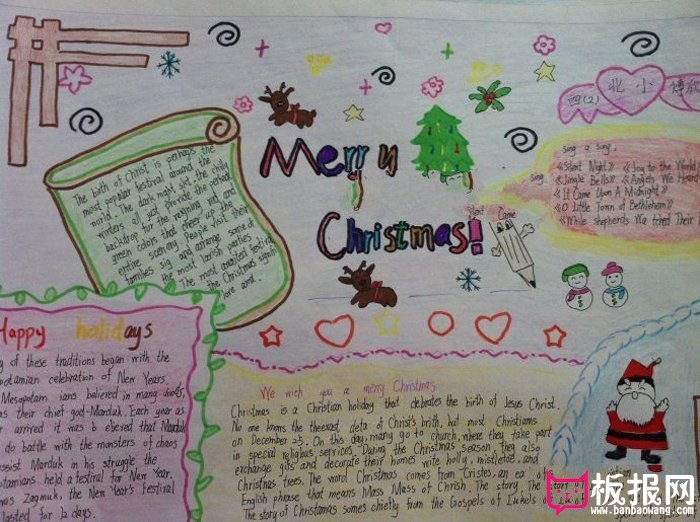 四(2) 北小
Merry
Christmas!
The birth of Christ is perhaps the
most popular festival around the
world. The dark night set the chilly
winters all just provide the perfect
backdrop for the reigning red and
green colors that cheer up the
entire scenery. People visit their
families sig and arrange some of
the most lavish parties
The most greatest festival
the Christmas
sing a song
sing
《Silent Night》 《Joy to the World》
《Jingle Bells》 《Angels We Heard
《It Came Upon A Midnight》
《O Little Town of Bethlehem》
《While shepherds Wa tched Their
Silent Came
Happy holidays
of these traditions began with the
potamian celebration of New Years.
Mesopotam ians believed in many gods,
as their chief god-Marduk. Each year as
arrived it was b elieved that Marduk
do battle with the monsters of chaos
assist Marduk in his struggle the
otamians held a festival for New Year.
was Zagmuk, the New Year's festival
lasted for 12 days.
We wich you a merry Christmas
Christmas is a Christian holiday that celebrates the birth of Jesus Christ.
No one knows theexact data of Christ's brith, but most Christians
on December 25. On this day, many go to church, where they take part
in special religious services. During the Christmas season, they also
exchange gifts and decorate their homes with holly, mistletoe, and
Christmas trees. The word Christmas comes from Cristes, an ea
English phrase that means Mass Mass of Christh. The story. The story of
The story of Christamas somes chiefly from the Gospels of Lukels of
板报网
www.banbaowang.com